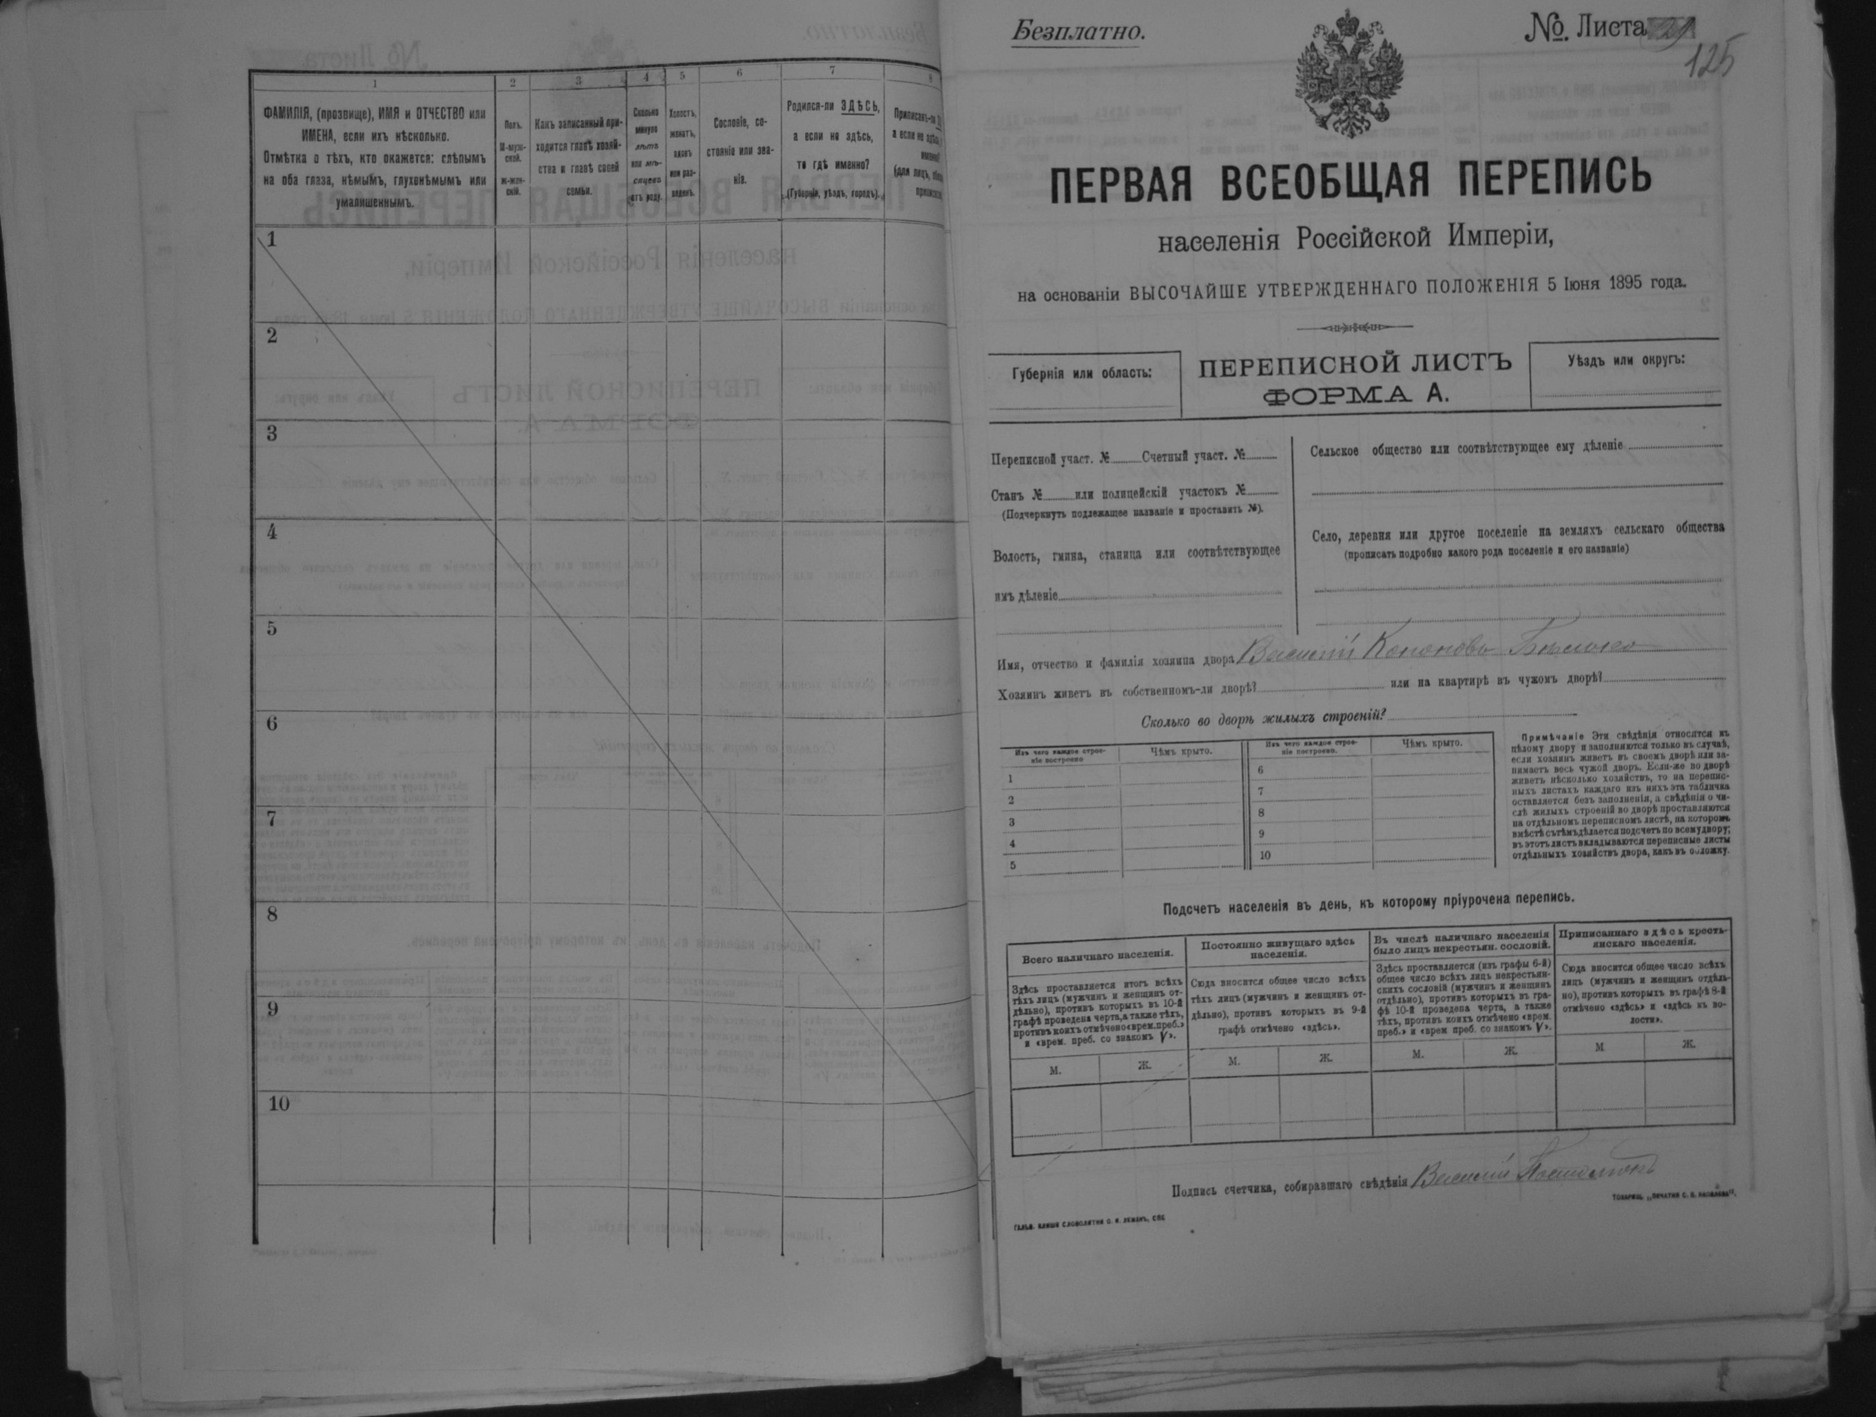 1 2 3 4 5 6 7 8
ФАМИЛІЯ, (прозвище), ИМЯ и ОТЧЕСТВО или
ИМЕНА, если ихъ нѣсколько.
Отмѣтка о тѣхъ, кто окажется: слѣпымъ
на оба глаза, нѣмымъ, глухонѣмымъ или
умалишеннымъ.
Полъ.
М-муж-
ской.
Ж-жен-
скій.
Какъ записанный при-
ходится главѣ хозяй-
ства и главѣ своей
семьи.
Сколько
минуло
лѣтъ
или мѣ-
сяцевъ
отъ роду.
Холостъ,
женатъ,
вдовъ
или раз-
веденъ.
Сословіе, со-
стояніе или зва-
ніе.
Родился-ли ЗДѢСЬ,
а если не здѣсь,
то гдѣ именно?
(Губернія, уѣздъ, городъ).
Приписанъ-ли
а если не здѣсь
(для лицъ,
1
2
3
4
5
6
7
8
9
10
Безплатно.
№. Листа
125
ПЕРВАЯ ВСЕОБЩАЯ ПЕРЕПИСЬ
населенія Россійской Имперіи,
на основаніи ВЫСОЧАЙШЕ УТВЕРЖДЕННАГО ПОЛОЖЕНІЯ 5 Іюня 1895 года.
Губернія или область:
ПЕРЕПИСНОЙ ЛИСТЪ
ФОРМА А.
Уѣздъ или округъ:
Переписной участ. № Счетный участ. №
Станъ № или полицейскій участокъ №
(Подчеркнуть подлежащее названіе и проставить №).
Волость, гмина, станица или соотвѣтствующее
имъ дѣленіе
Сельское общество или соотвѣтствующее ему дѣленіе
Село, деревня или другое поселеніе на земляхъ сельскаго общества
(прописать подробно какого рода поселеніе и его названіе)
Имя, отчество и фамилія хозяина двора Василій Кононовъ
Хозяинъ живетъ въ собственномъ-ли дворѣ? или на квартирѣ въ чужомъ дворѣ?
Сколько во дворѣ жилыхъ строеній?
Изъ чего каждое строе-
ніе построено
Чѣмъ крыто.
Изъ чего каждое строе-
ніе построено.
Чѣмъ крыто.
1 6
2 7
3 8
4 9
5 10
Примѣчаніе Эти свѣдѣнія относятся къ
цѣлому двору и заполняются только въ случаѣ,
если хозяинъ живетъ въ своемъ дворѣ или за-
нимаетъ весь чужой дворъ. Если-же во дворѣ
живетъ нѣсколько хозяйствъ, то на перепис-
ныхъ листахъ каждаго изъ нихъ эта табличка
оставляется безъ заполненія, а свѣдѣнія о чи-
слѣ жилыхъ строеній во дворѣ проставляются
на отдѣльномъ переписномъ листѣ, на которомъ
вмѣстѣ съ тѣмъ дѣлается подсчетъ по всему двору;
въ этотъ листъ вкладываются переписные листы
отдѣльныхъ хозяйствъ двора, какъ въ обложку.
Подсчетъ населенія въ день, къ которому пріурочена перепись.
Всего наличнаго населенія.
Здѣсь проставляется итогъ всѣхъ
тѣхъ лицъ (мужчинъ и женщинъ от-
дѣльно), противъ которыхъ въ 10-й
графѣ проведена черта, а также тѣхъ,
противъ коихъ отмѣчено «врем. преб.»
и «врем. преб. со знакомъ V».
Постоянно живущаго здѣсь
населенія.
Сюда вносится общее число всѣхъ
тѣхъ лицъ (мужчинъ и женщинъ от-
дѣльно), противъ которыхъ въ 9-й
графѣ отмѣчено «здѣсь».
Въ числѣ наличнаго населенія
было лицъ некрестьян. сословій.
Здѣсь проставляется (изъ графы 6-й)
общее число всѣхъ лицъ некрестьян-
скихъ сословій (мужчинъ и женщинъ
отдѣльно), противъ которыхъ въ гра-
фѣ 10-й проведена черта, а также
тѣхъ, противъ коихъ отмѣчено «врем.
преб.» и «врем преб. со знакомъ V».
Приписаннаго здѣсь кресть-
янскаго населенія.
Сюда вносится общее число всѣхъ
лицъ (мужчинъ и женщинъ отдѣль-
но), противъ которыхъ въ графѣ 8-й
отмѣчено «здѣсь» и «здѣсь въ во-
лости».
М. Ж. М. Ж. М. Ж. М. Ж.
Подпись счетчика, собиравшаго свѣдѣнія Василій